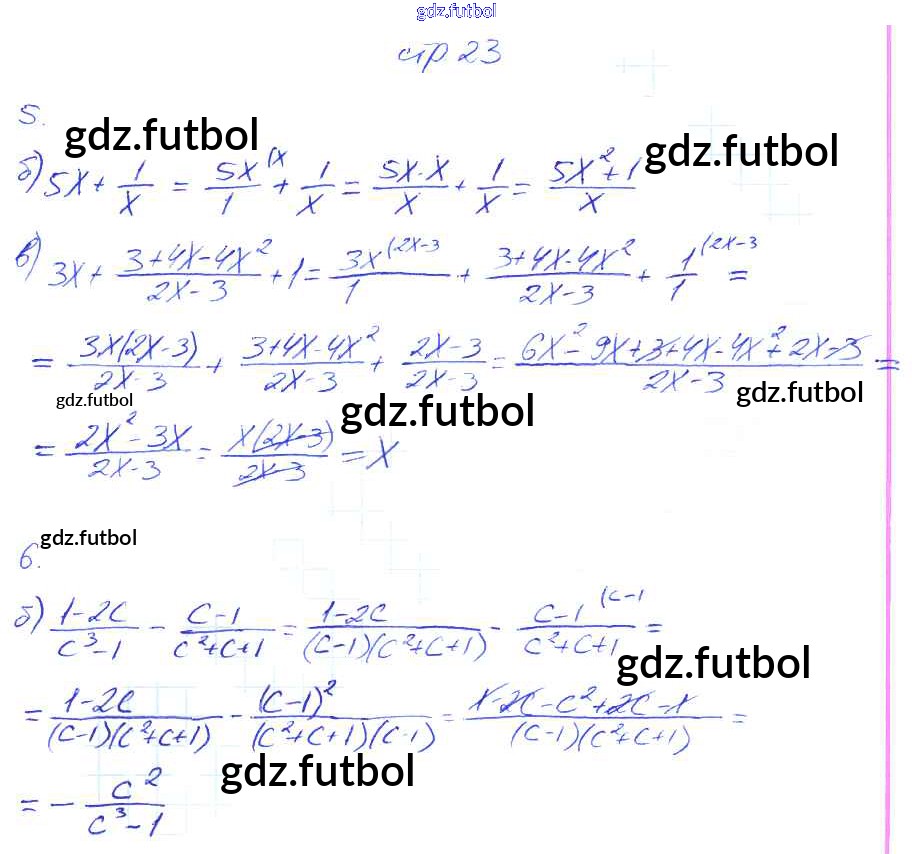 gdz.futbol
стр 23
5.
gdz.futbol
б) 5x + 1/x = 5x/1 (x + 1/x = 5x·x/x + 1/x = 5x²+1/x
gdz.futbol
в) 3x + 3+4x-4x²/2x-3 + 1 = 3x/1 (2x-3 + 3+4x-4x²/2x-3 + 1/1 (2x-3 =
= 3x(2x-3)/2x-3 + 3+4x-4x²/2x-3 + 2x-3/2x-3 = 6x²-9x+3+4x-4x²+2x-3/2x-3 =
gdz.futbol
gdz.futbol
gdz.futbol
= 2x²-3x/2x-3 = x(2x-3)/2x-3 = x
gdz.futbol
6.
б) 1-2c/c³-1 - c-1/c²+c+1 = 1-2c/(c-1)(c²+c+1) - c-1/c²+c+1 (c-1 =
gdz.futbol
= 1-2c/(c-1)(c²+c+1) - (c-1)²/(c²+c+1)(c-1) = 1-2c-c²+2c-1/(c-1)(c²+c+1) =
gdz.futbol
= - c²/c³-1